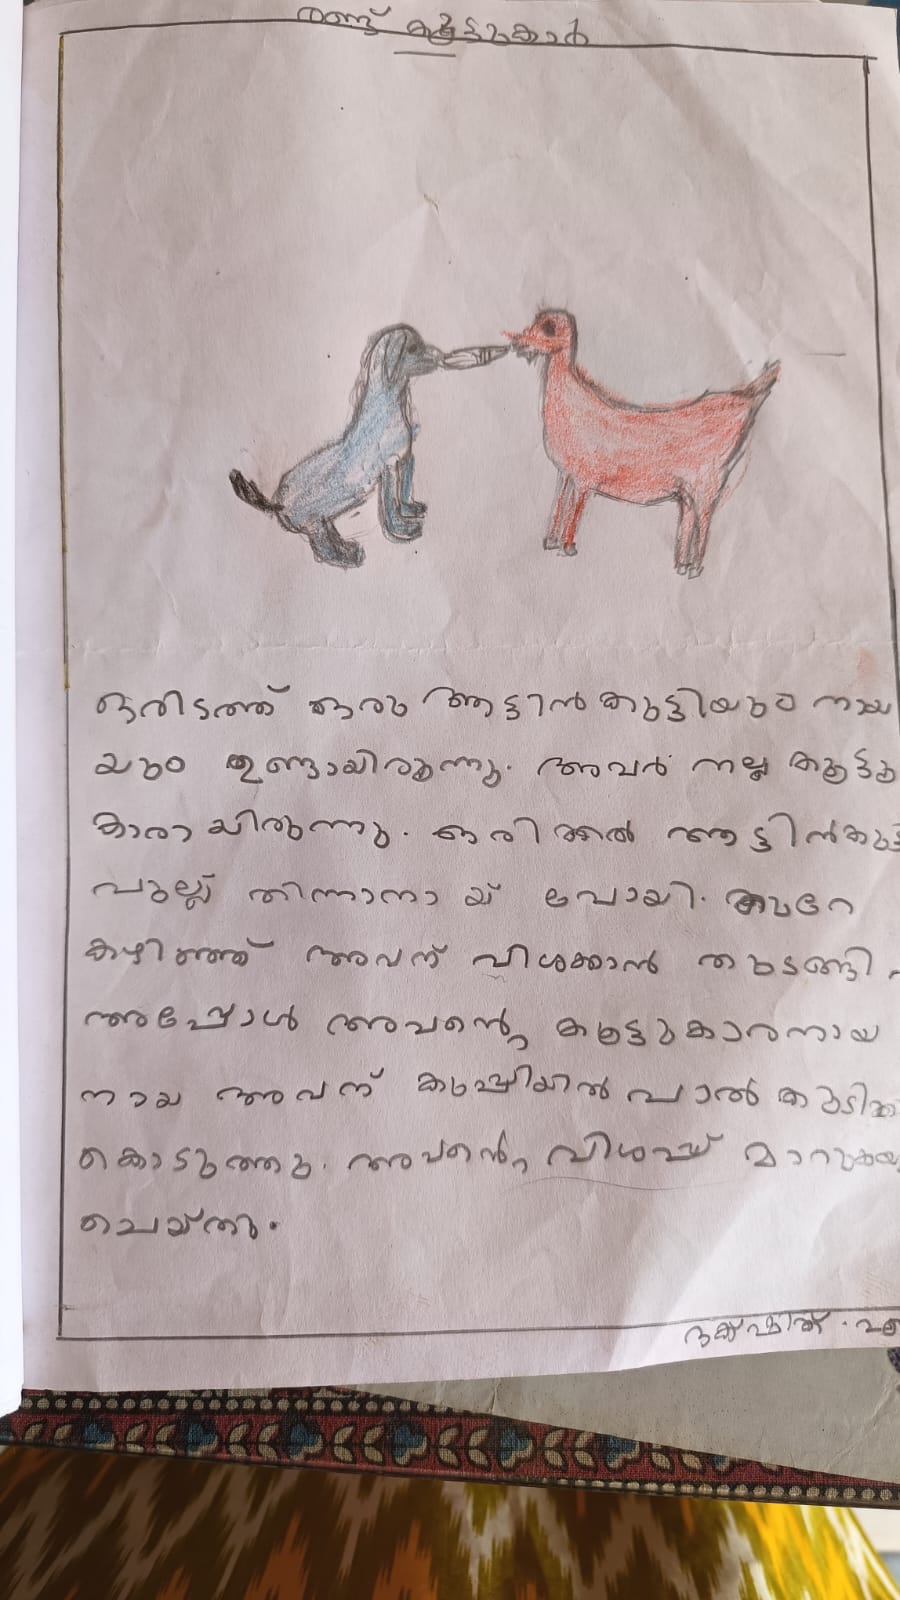 രണ്ട് കൂട്ടുകാർ
ഒരിടത്ത് ഒരു ആട്ടിൻകുട്ടിയും നായ
യും ഉണ്ടായിരുന്നു. അവർ നല്ല കൂട്ടു
കാരായിരുന്നു. ഒരിക്കൽ ആട്ടിൻകുട്ടി
പുല്ല് തിന്നാനായ് പോയി. കുറേ
കഴിഞ്ഞ് അവന് വിശക്കാൻ തുടങ്ങി.
അപ്പോൾ അവന്റെ കൂട്ടുകാരനായ
നായ അവന് കുപ്പിയിൽ പാൽ കുടിക്ക
കൊടുത്തു. അവന്റെ വിശപ്പ് മാറുകയു
ചെയ്തു.